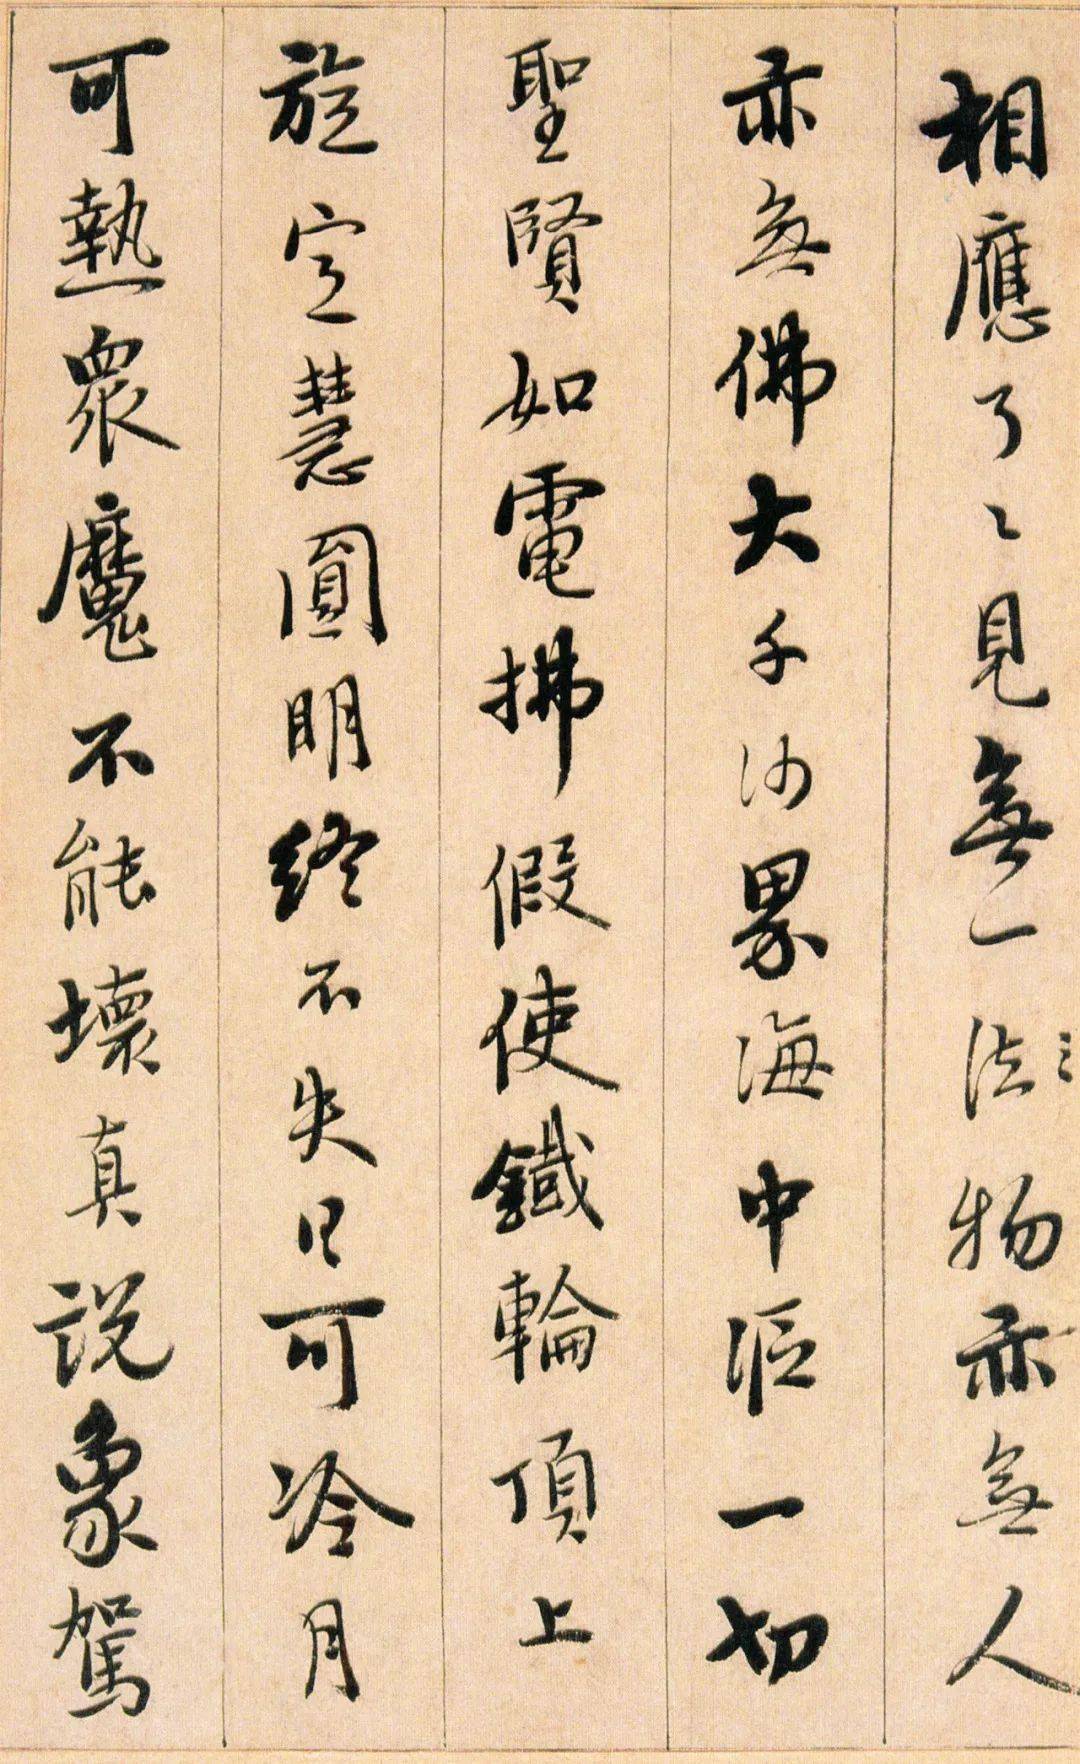 相應了〻見無一法物亦無人
亦無佛大千沙界海中漚一切
聖賢如電拂假使鐵輪頂上
旋定慧圓明終不失日可冷月
可熱衆魔不能壞真説象駕